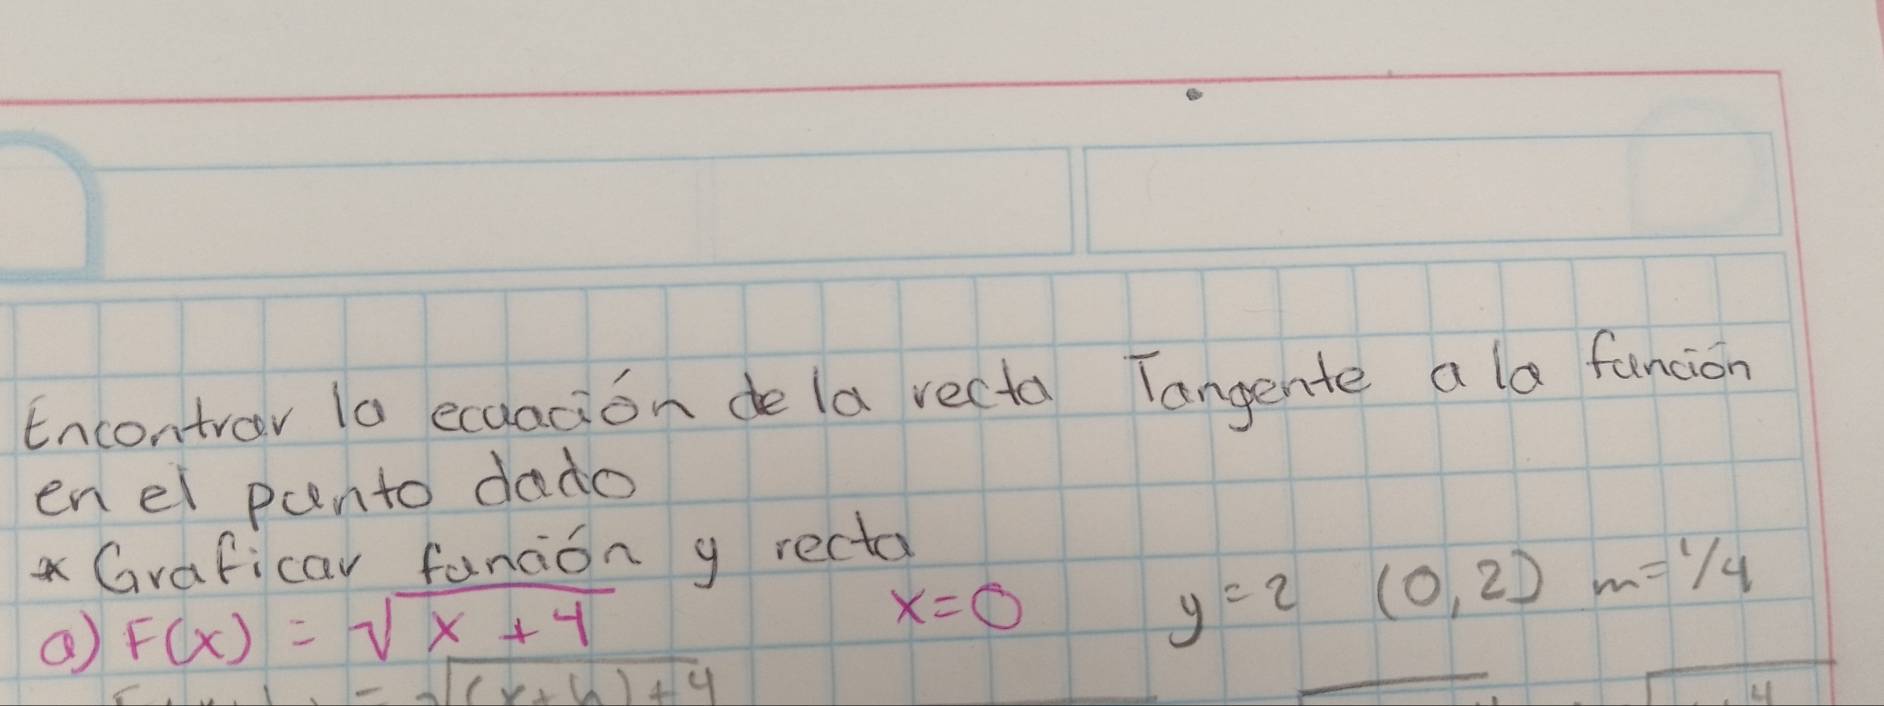 Encontrar la ecuación de la recta Tangente a la función
en el punto dado
* Graficar función y recta
a) F(x) = √x + 4 x=0 y=2 (0,2) m=1/4
= √(x+h)+4